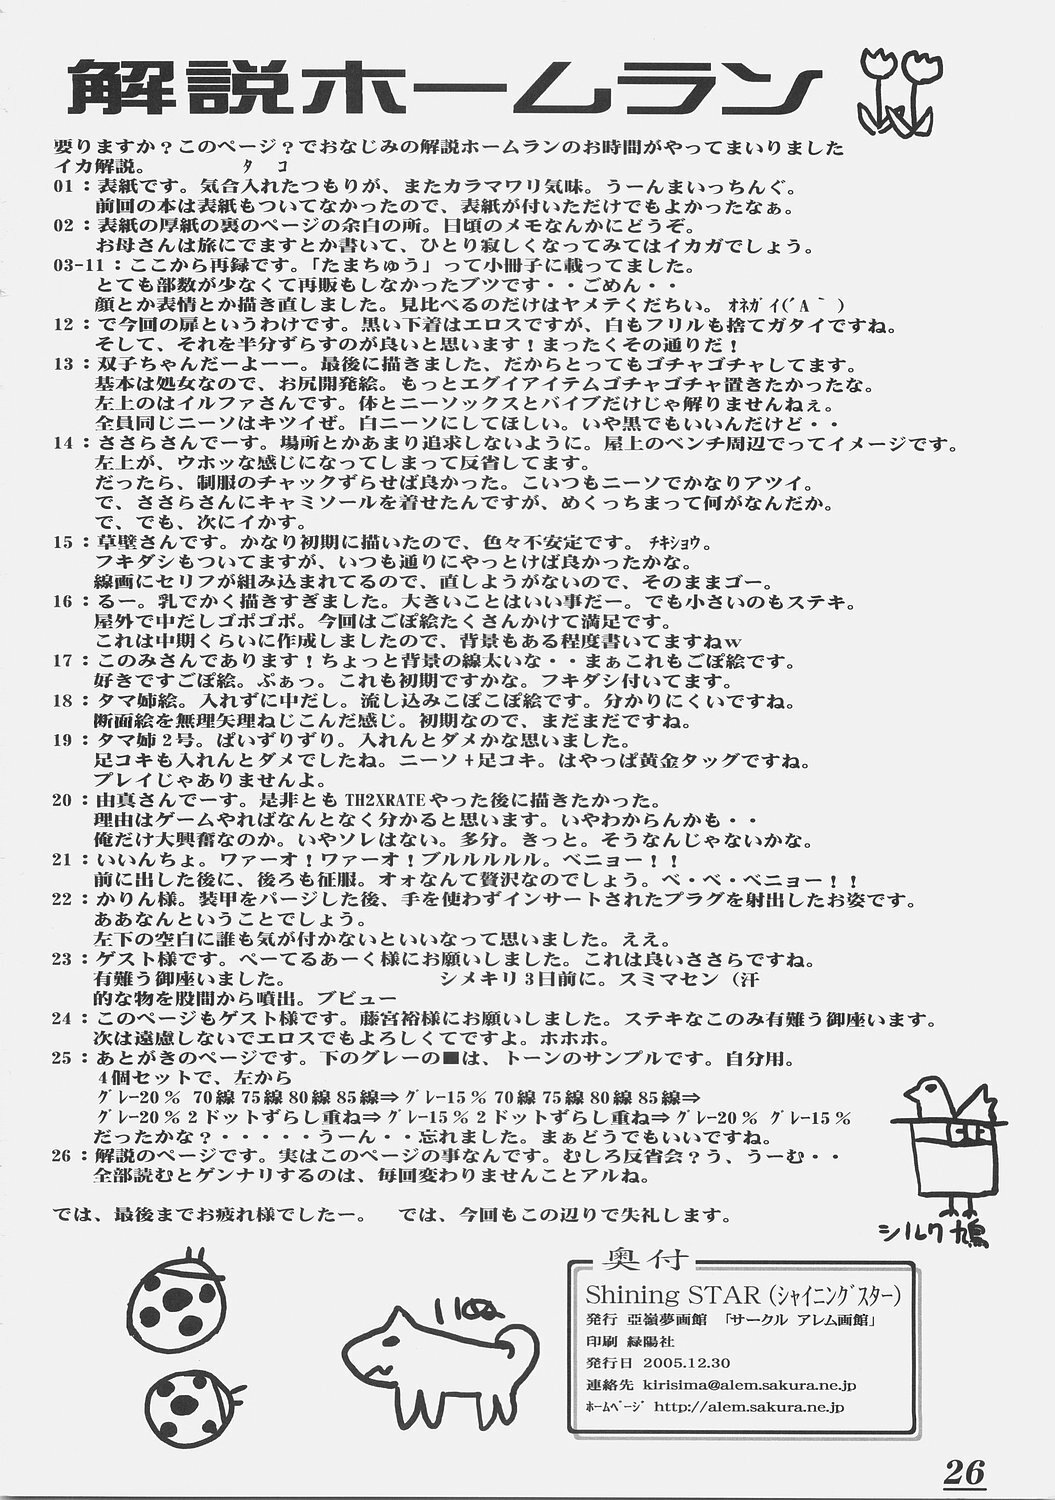 解説ホームラン
要りますか？このページ？でおなじみの解説ホームランのお時間がやってまいりました
イカ解説。　　　　　ﾀ　ｺ
01：表紙です。気合入れたつもりが、またカラマワリ気味。うーんまいっちんぐ。
前回の本は表紙もついてなかったので、表紙が付いただけでもよかったなぁ。
02：表紙の厚紙の裏のページの余白の所。日頃のメモなんかにどうぞ。
お母さんは旅にでますとか書いて、ひとり寂しくなってみてはイカガでしょう。
03-11：ここから再録です。「たまちゅう」って小冊子に載ってました。
とても部数が少なくて再販もしなかったブツです・・ごめん・・
顔とか表情とか描き直しました。見比べるのだけはヤメテくだちい。ｵﾈｶﾞｲ(´A｀)
12：で今回の扉というわけです。黒い下着はエロスですが、白もフリルも捨てガタイですね。
そして、それを半分ずらすのが良いと思います！まったくその通りだ！
13：双子ちゃんだーよーー。最後に描きました、だからとってもゴチャゴチャしてます。
基本は処女なので、お尻開発絵。もっとエグイアイテムゴチャゴチャ置きたかったな。
左上のはイルファさんです。体とニーソックスとバイブだけじゃ解りませんねぇ。
全員同じニーソはキツイぜ。白ニーソにしてほしい。いや黒でもいいんだけど・・
14：ささらさんでーす。場所とかあまり追求しないように。屋上のベンチ周辺でってイメージです。
左上が、ウホッな感じになってしまって反省してます。
だったら、制服のチャックずらせば良かった。こいつもニーソでかなりアツイ。
で、ささらさんにキャミソールを着せたんですが、めくっちまって何がなんだか。
で、でも、次にイかす。
15：草壁さんです。かなり初期に描いたので、色々不安定です。ﾁｷｼｮｳ。
フキダシもついてますが、いつも通りにやっとけば良かったかな。
線画にセリフが組み込まれてるので、直しようがないので、そのままゴー。
16：るー。乳でかく描きすぎました。大きいことはいい事だー。でも小さいのもステキ。
屋外で中だしゴポゴポ。今回はごぽ絵たくさんかけて満足です。
これは中期くらいに作成しましたので、背景もある程度書いてますねｗ
17：このみさんであります！ちょっと背景の線太いな・・まぁこれもごぽ絵です。
好きですごぽ絵。ぷぁっ。これも初期ですかな。フキダシ付いてます。
18：タマ姉絵。入れずに中だし。流し込みこぽこぽ絵です。分かりにくいですね。
断面絵を無理矢理ねじこんだ感じ。初期なので、まだまだですね。
19：タマ姉２号。ぱいずりずり。入れんとダメかな思いました。
足コキも入れんとダメでしたね。ニーソ+足コキ。はやっぱ黄金タッグですね。
プレイじゃありませんよ。
20：由真さんでーす。是非とも TH2XRATE やった後に描きたかった。
理由はゲームやればなんとなく分かると思います。いやわからんかも・・
俺だけ大興奮なのか。いやソレはない。多分。きっと。そうなんじゃないかな。
21：いいんちょ。ワァーオ！ワァーオ！ブルルルルル。ベニョー！！
前に出した後に、後ろも征服。オォなんて贅沢なのでしょう。ベ・ベ・ベニョー！！
22：かりん様。装甲をパージした後、手を使わずインサートされたプラグを射出したお姿です。
ああなんということでしょう。
左下の空白に誰も気が付かないといいなって思いました。ええ。
23：ゲスト様です。ぺーてるあーく様にお願いしました。これは良いささらですね。
有難う御座いました。　　　　　　　シメキリ３日前に。スミマセン（汗
的な物を股間から噴出。ブビュー
24：このページもゲスト様です。藤宮裕様にお願いしました。ステキなこのみ有難う御座います。
次は遠慮しないでエロスでもよろしくてですよ。ホホホ。
25：あとがきのページです。下のグレーの■は、トーンのサンプルです。自分用。
4個セットで、左から
ｸﾞﾚｰ20％ 70線 75線 80線 85線⇒ｸﾞﾚｰ15％ 70線 75線 80線 85線⇒
ｸﾞﾚｰ20％２ドットずらし重ね⇒ｸﾞﾚｰ15％２ドットずらし重ね⇒ｸﾞﾚｰ20％ ｸﾞﾚｰ15％
だったかな？・・・・・うーん・・忘れました。まぁどうでもいいですね。
26：解説のページです。実はこのページの事なんです。むしろ反省会？う、うーむ・・
全部読むとゲンナリするのは、毎回変わりませんことアルね。
では、最後までお疲れ様でしたー。　では、今回もこの辺りで失礼します。
シルク鳩
奥付
Shining STAR（ｼｬｲﾆﾝｸﾞｽﾀｰ）
発行 亞嶺夢画館 「サークル アレム画館」
印刷 緑陽社
発行日 2005.12.30
連絡先 kirisima@alem.sakura.ne.jp
ﾎｰﾑﾍﾟｰｼﾞ http://alem.sakura.ne.jp
26